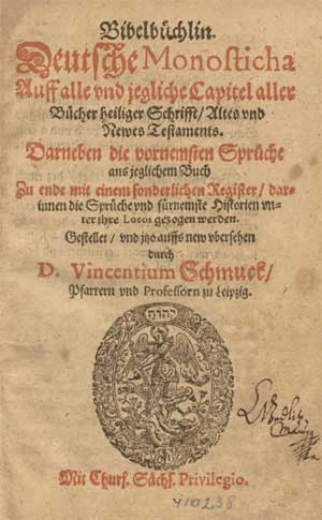 Bibelbüchlin.
Deutsche Monosticha
Auff alle vnd jegliche Capitel aller
Bücher heiliger Schrifft / Altes vnd
Newes Testaments.
Darneben die vornemsten Sprüche
aus jeglichem Buch
Zu ende mit einem sonderlichen Register / dar-
innen die Sprüche vnd fürnemste Historien vn-
ter ihre Locos gezogen werden.
Gestellet / vnd jtzo auffs new vbersehen
durch
D. Vincentium Schmuck /
Pfarrern vnd Professorn zu Leipzig.
יהוה
Mit Churf. Sächs. Privilegio.
410238